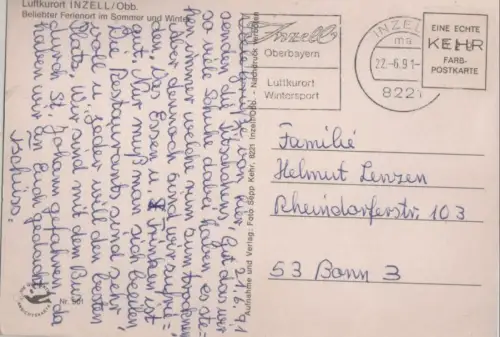 Luftkurort INZELL/Obb.
Beliebter Ferienort im Sommer und Winter
21.6.91
Gut das wir
so viele Schuhe dabei haben, es ste=
hen immer welche zum trocknen
Aber dennoch sind wir zufrie=
den. Das Essen u. Trinken ist
gut. Nur muß man sich beeilen,
die Restaurants sind sehr
voll u. jeder will den besten
Platz. Wir sind mit dem Bus
durch St. Johann gefahren, da
haben wir an Euch gedacht.
Tschüss.
Nr. 901
Aufnahme und Verlag: Foto Sepp Kehr, 8221 Inzell/Obb. - Nachdruck verboten
Inzell
Oberbayern
Luftkurort
Wintersport
INZELL
ma
22.-6.91-
8221
EINE ECHTE
KEHR
FARB-
POSTKARTE
Familie
Helmut Lenzen
Rheindorferstr. 103
53 Bonn 3